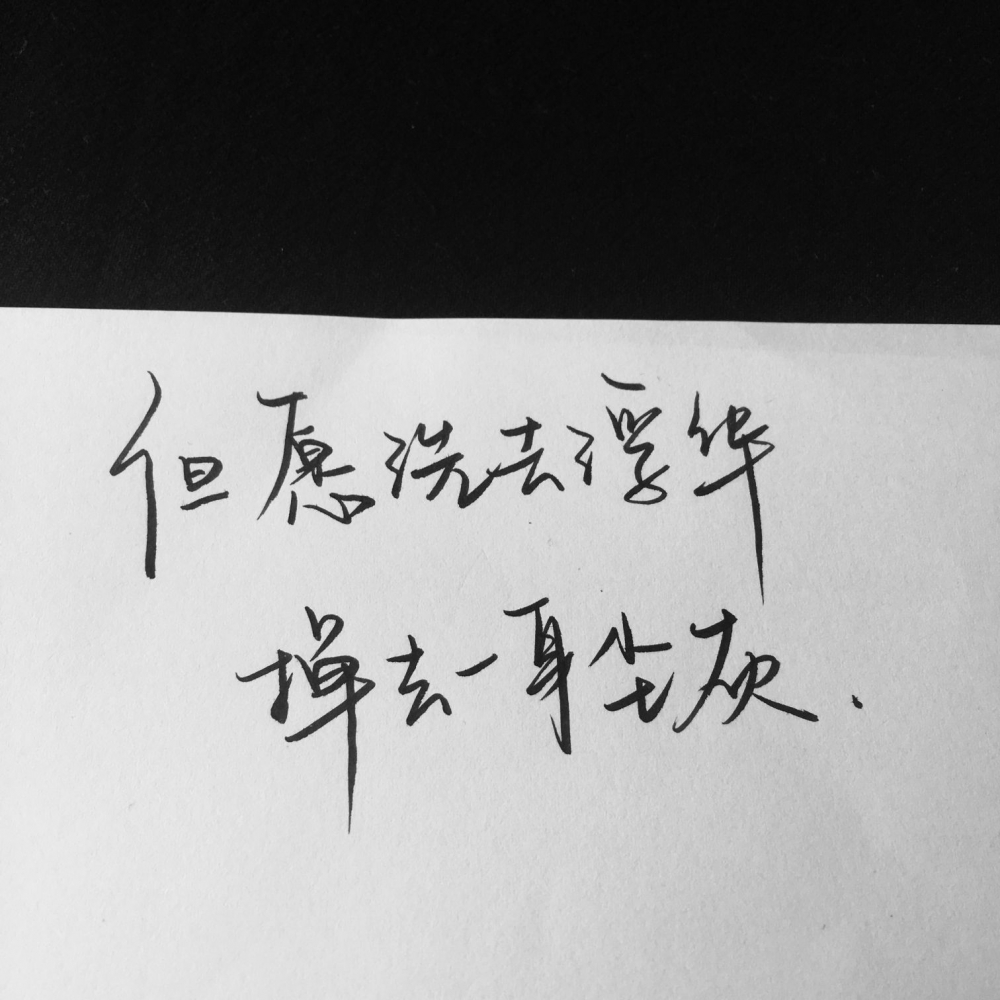 但愿洗去浮华
掸去一身尘灰.